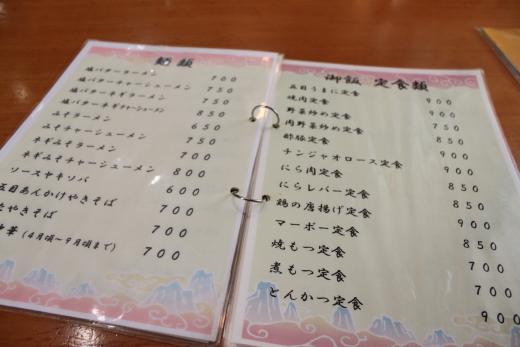 麺類
塩バターラーメン 700
塩バターチャーシューメン 750
塩バターネギラーメン 750
塩バターネギチャーシューメン 850
みそラーメン 650
みそチャーシューメン 750
ネギみそラーメン 700
ネギみそチャーシューメン 800
ソースヤキソバ 600
五目あんかけやきそば 700
やきそば 700
(4月頃～9月頃まで) 700
御飯 定食類
五目うまに定食 900
焼肉定食 900
野菜炒め定食 750
肉野菜炒め定食 850
酢豚定食 900
チンジャオロース定食 900
にら肉定食 850
にらレバー定食 850
鶏の唐揚げ定食 900
マーボー定食 850
焼もつ定食 700
煮もつ定食 700
とんかつ定食 900